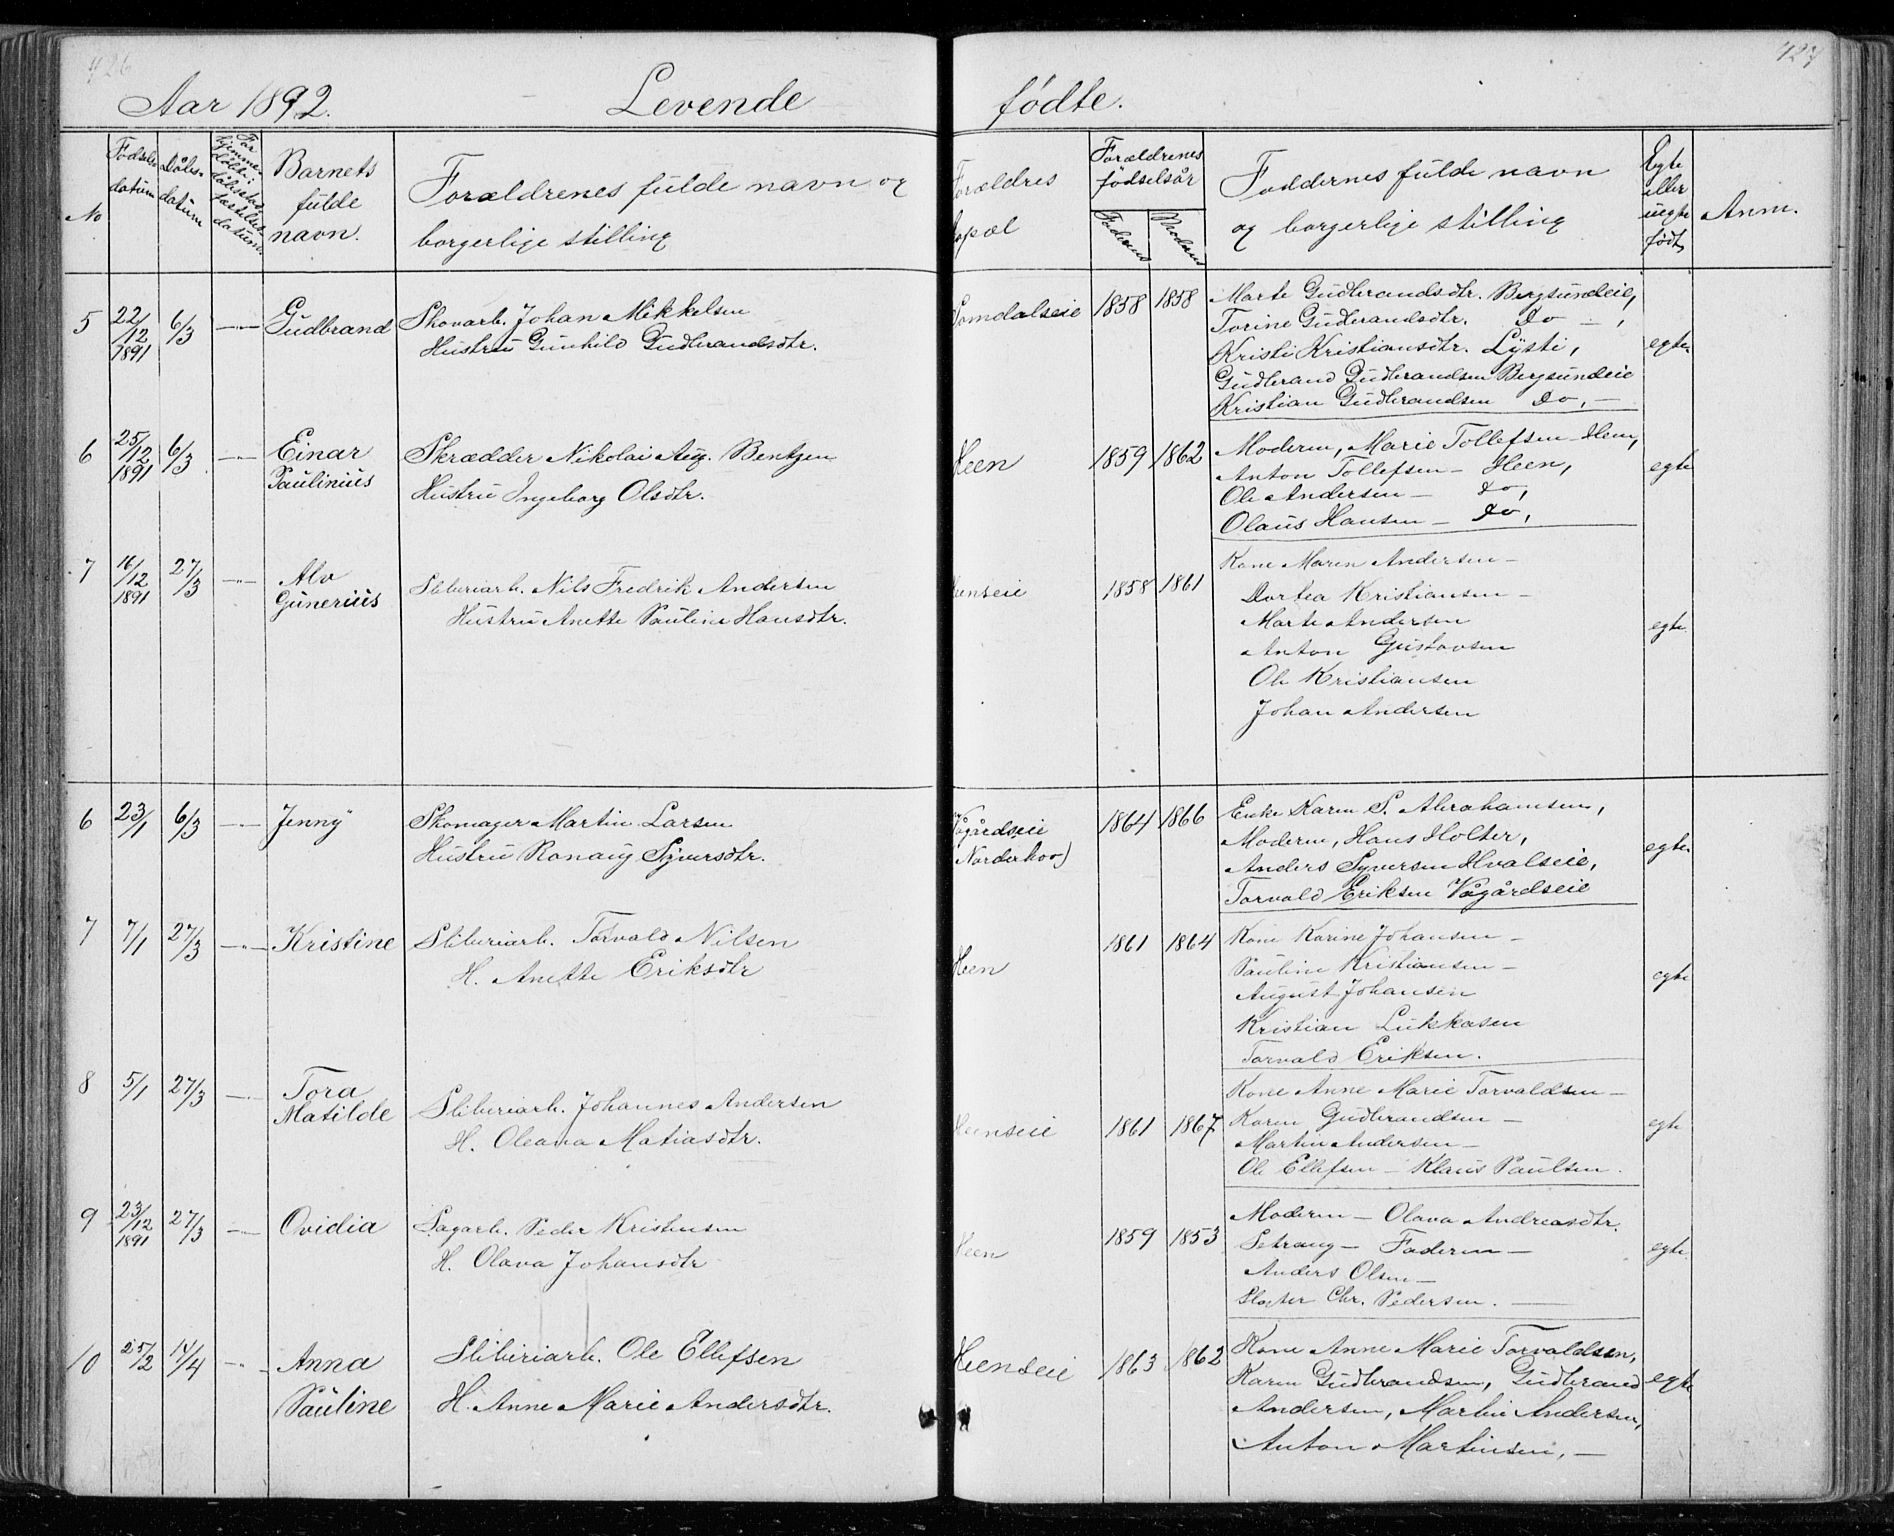 426
427
Aar 1892.
Levende
fødte.
No
Fødsels-
datum
Dåbs-
datum
For
hjemme-
døbt:
dåbens
datum.
Barnets
fulde
navn.
Forældrenes fulde navn og
borgerlige stilling
Forældres
bopæl
Forældrenes
fødselsår
Faderens
Moderens
Faddernes fulde navn
og borgerlige stilling
Egte
eller
uegte
født
Anm.
5 22/12 1891 6/3 — Gudbrand
Skovarb. Johan Mikkelsen
Hustru Gunhild Gudbrandsdtr.
Somdalseie 1858 1858
Marte Gudbrandsdtr. Bergsundeie,
Torine Gudbrandsdtr. Do —,
Kristi Kristiansdtr. Lysti,
Gudbrand Gudbrandsen Bergsundeie
Kristian Gudbrandsen Do, —
egte
6 25/12 1891 6/3 — Einar
Paulinius
Skrædder Nikolai Aug. Bentzen
Hustru Ingeborg Olsdtr.
Heen 1859 1862
Moderen, Marie Tollefsen Hen,
Anton Tollefsen — Heen,
Ole Andersen — Do,
Olaus Hansen — Do,
egte
7 16/12 1891 27/3 — Alv
Gunerius
Sliberiarb. Nils Fredrik Andersen
Hustru Anette Pauline Hansdtr.
Henseie 1858 1861
Kone Maren Andersen —
Dortea Kristiansen —
Marte Andersen
Anton Gustavsen
Ole Kristiansen
Johan Andersen
egte.
6 23/1 6/3 — Jenny
Skomager Martin Larsen
Hustru Ronaug Syversdtr.
Vågårdseie
Norderhov)
1864 1866
Enke Karen S. Abrahamsen,
Moderen, Hans Holter,
Anders Syversen Hvalseie,
Torvald Eriksen Vågårdseie
egte.
7 7/1 27/3 — Kristine
Sliberiarb. Torvald Nilsen
H. Anette Eriksdtr
Heen 1861 1864
Kone Karine Johansen —
Pauline Kristiansen —
August Johansen
Kristian Lukkasen
Torvald Eriksen.
egte
8 5/1 27/3 — Tora
Matilde
Sliberiarb. Johannes Andersen
H. Oleana Matiasdtr.
Heenseie 1861 1867
Kone Anne Marie Torvaldsen —
Karen Gudbrandsen —
Martin Andersen —
Ole Ellefsen — Klaus Paulsen.
egte
9 23/12 1891 27/3 — Ovidia
Sagarb. Peder Kristensen
H. Olava Johansdtr
Heen 1859 1853
Moderen — Olava Andreasdtr.
Setrang — Faderen —
Anders Olsen —
Chr. Pedersen. —
egte.
10 25/2 14/4 — Anna
Pauline
Sliberiarb. Ole Ellefsen
H. Anne Marie Andersdtr.
Heenseie 1863 1862
Kone Anne Marie Torvaldsen,
Karen Gudbrandsen, Gudbrand
Andersen, Martin Andersen,
Anton Martinsen, —
egte